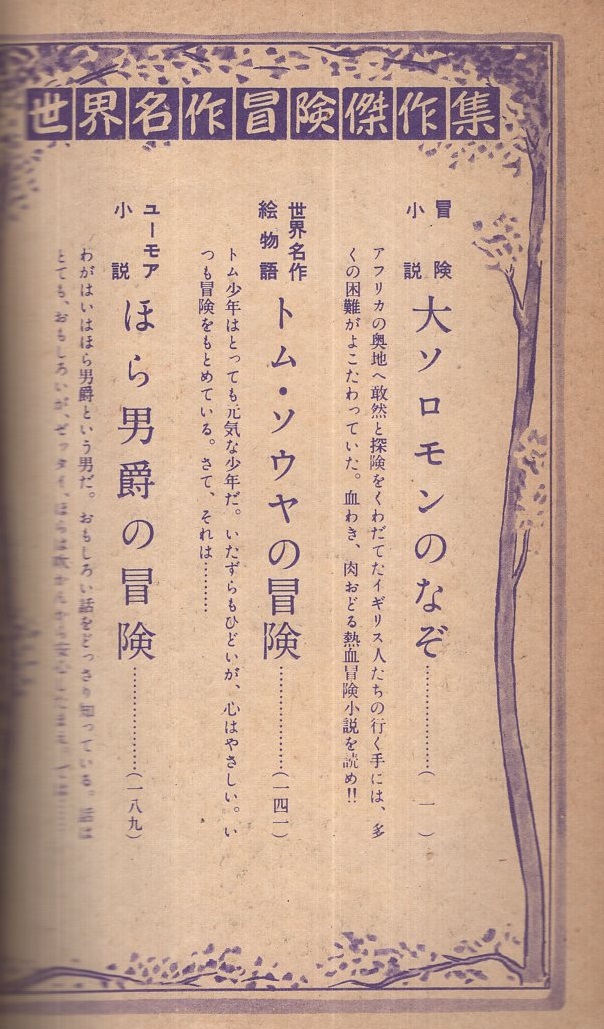 世界名作冒険傑作集
冒険
小説
大ソロモンのなぞ………………(一)
アフリカの奥地へ敢然と探険をくわだてたイギリス人たちの行く手には、多
くの困難がよこたわっていた。血わき、肉おどる熱血冒険小説を読め!!
世界名作
絵物語
トム・ソウヤの冒険………………(一四一)
トム少年はとっても元気な少年だ。いたずらもひどいが、心はやさしい。い
つも冒険をもとめている。さて、それは…………
ユーモア
小説
ほら男爵の冒険………………(一八九)
わがはいはほら男爵という男だ。おもしろい話をどっさり知っている。話は
とても、おもしろいが、ゼッタイ、ほらは吹かんから安心したまえ。では……